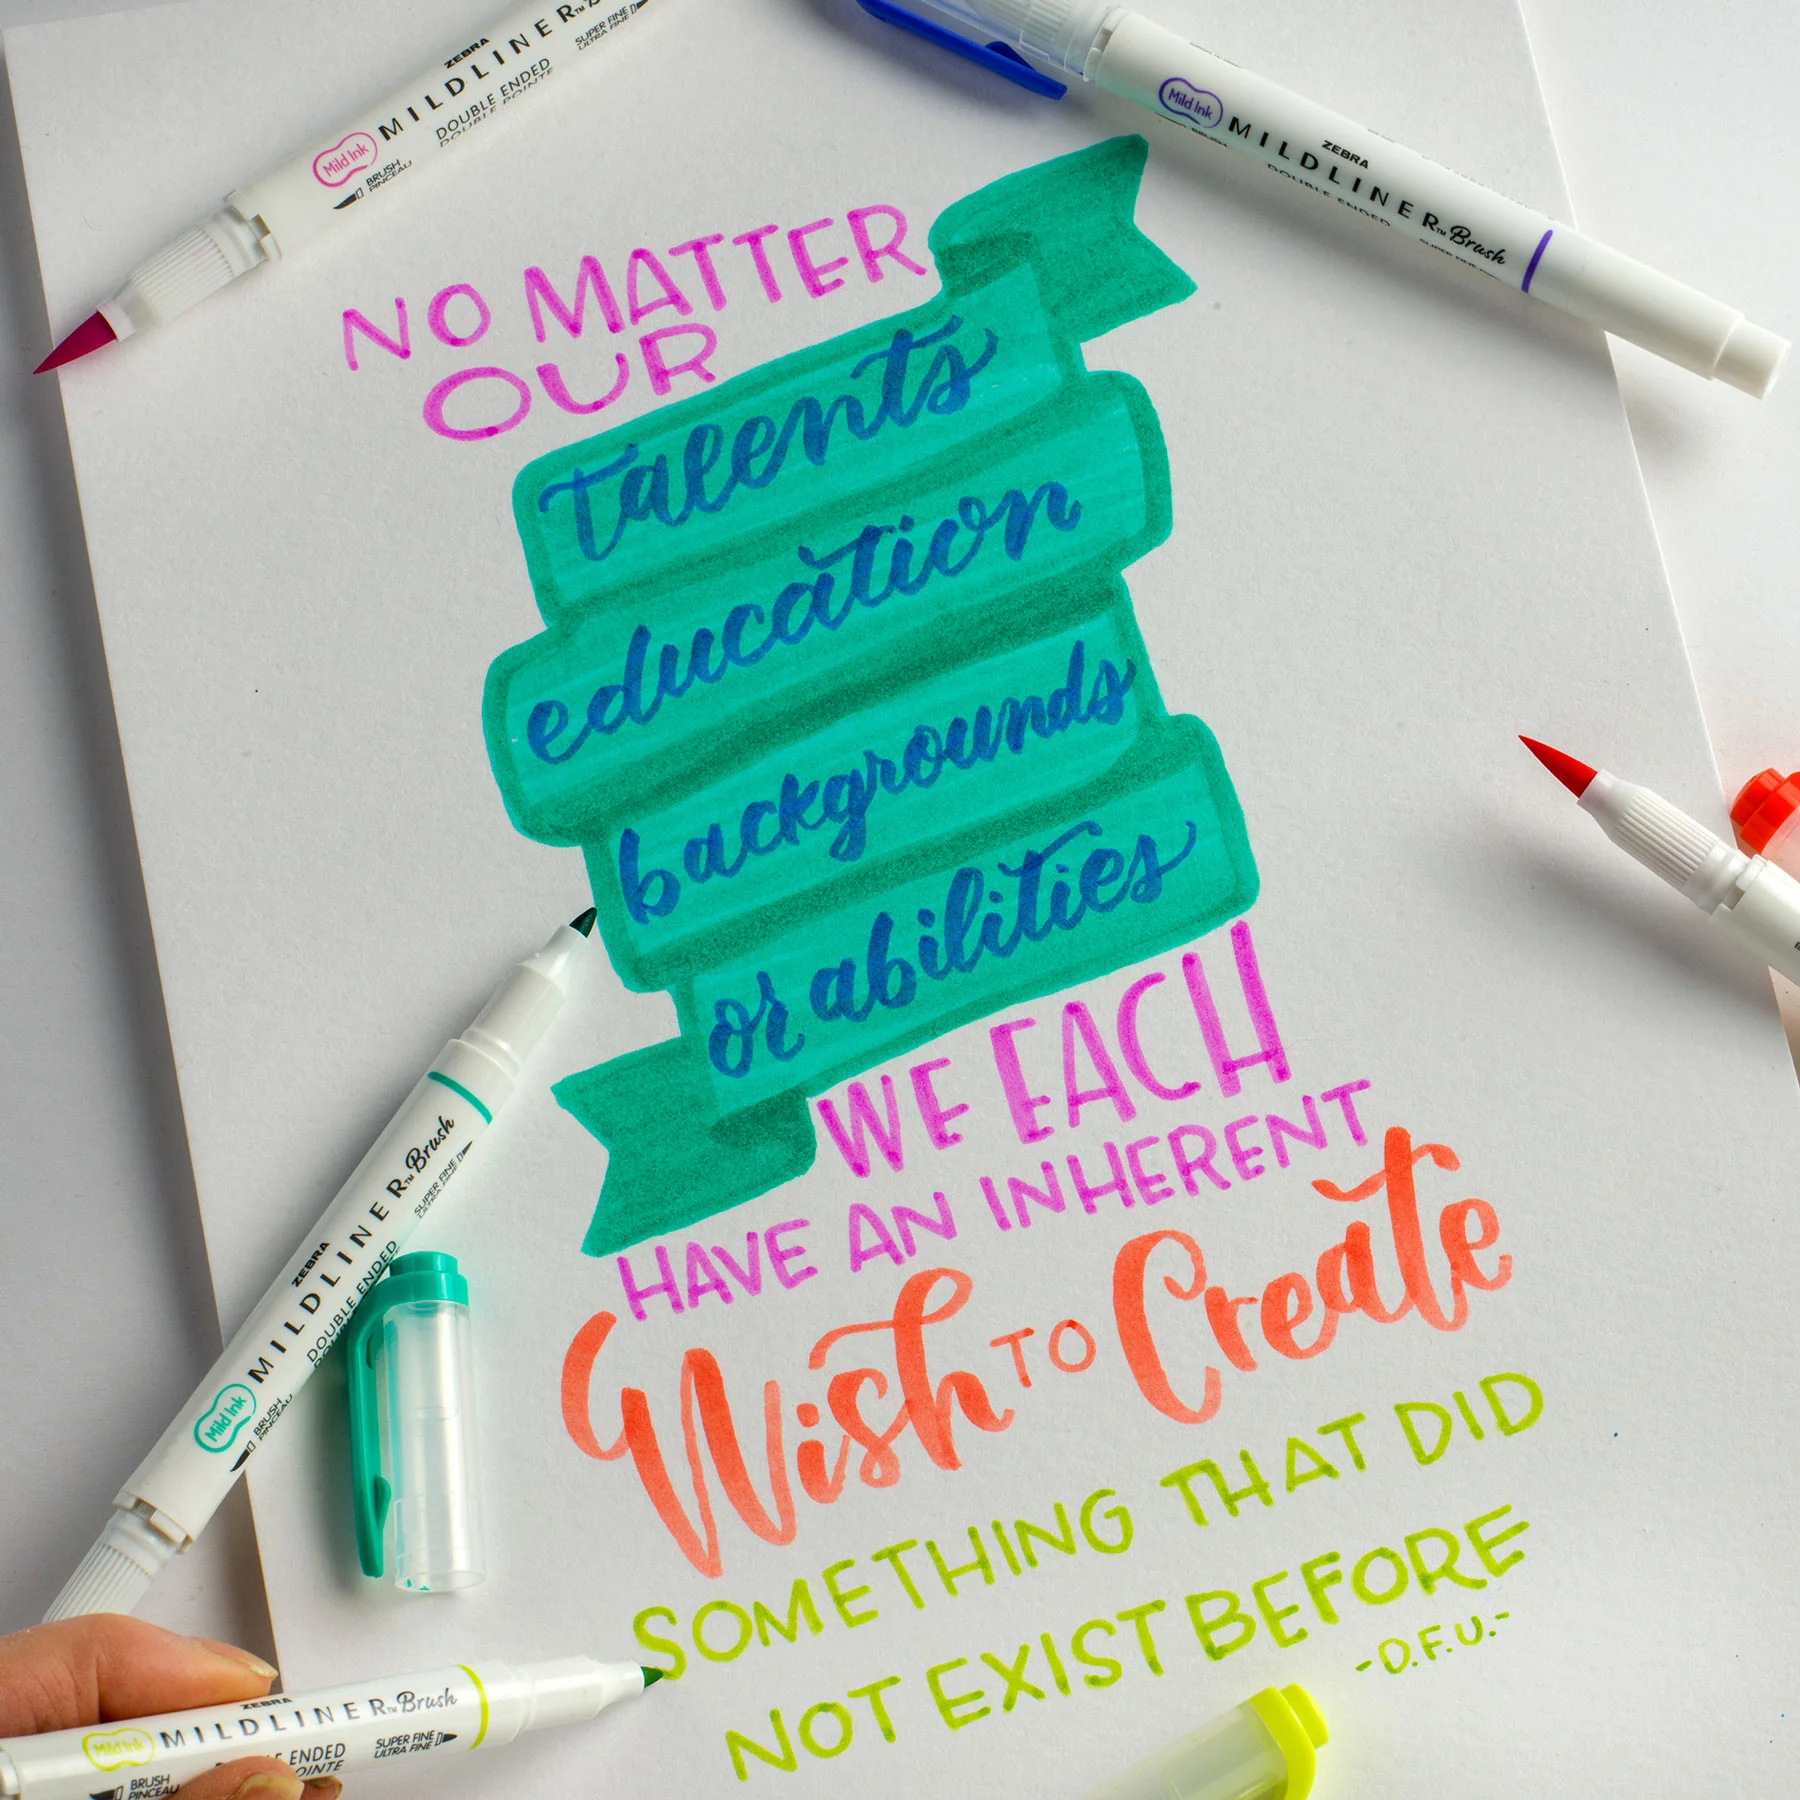 ZEBRA
MILDLINER™
DOUBLE ENDED
DOUBLE POINTE
SUPER FINE
ULTRA FINE
Mild Ink
BRUSH
PINCEAU
Mild Ink
ZEBRA
MILDLINER™ Brush
DOUBLE ENDED
NO MATTER
OUR
talents
education
backgrounds
or abilities
WE EACH
HAVE AN INHERENT
Wish TO Create
SOMETHING THAT DID
NOT EXIST BEFORE
-D.F.U.-
ZEBRA
MILDLINER™ Brush
DOUBLE ENDED
SUPER FINE
Mild Ink
BRUSH
PINCEAU
ZEBRA
MILDLINER™ Brush
ENDED
SUPER FINE
ULTRA FINE
Mild Ink
BRUSH
PINCEAU